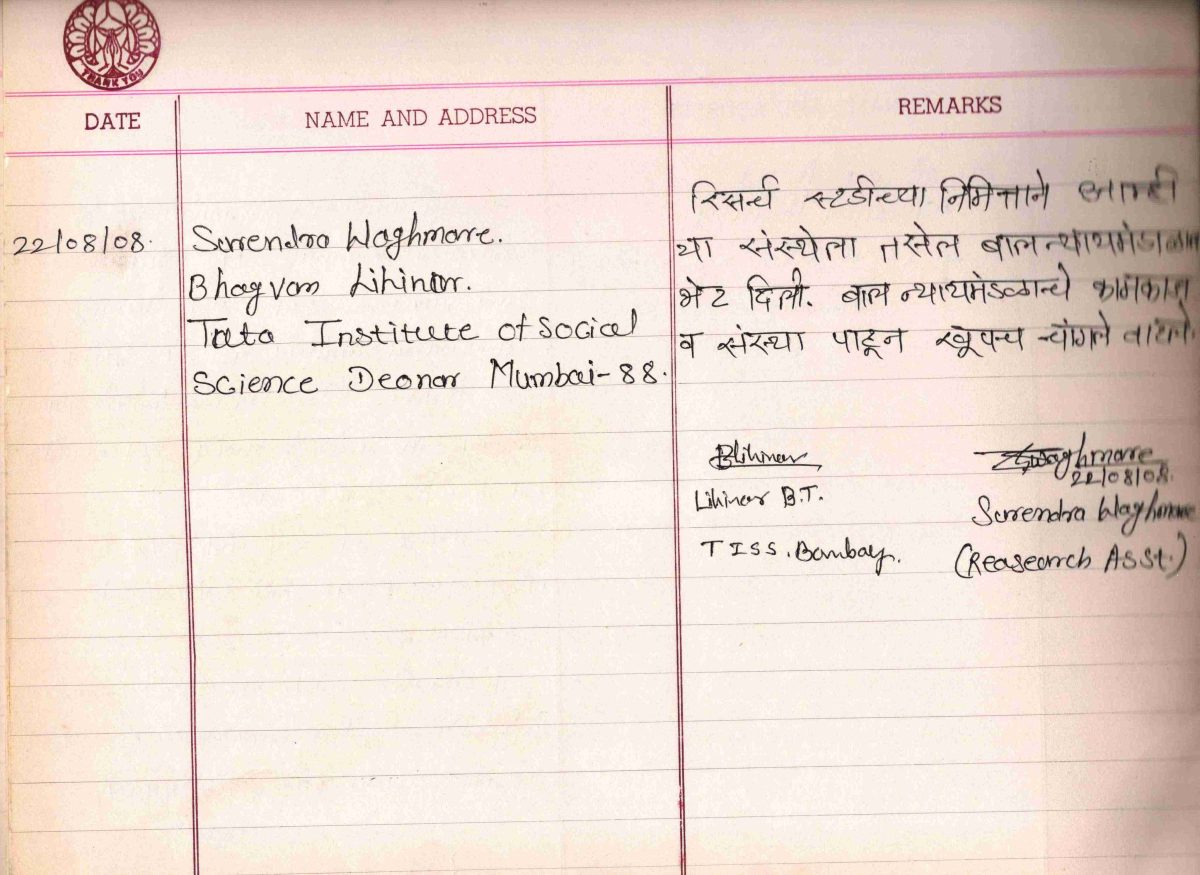 THANK YOU
DATE NAME AND ADDRESS REMARKS
22/08/08.
Surrendra Waghmare.
Bhagvan Lihinar.
Tata Institute of Social
Science Deonar Mumbai-88.
रिसर्च स्टडीच्या निमित्ताने आम्ही
या संस्थेला तसेल बाल न्यायमंडळाला
भेट दिली. बाल न्यायमंडळाचे कामकाज
व संस्था पाहून खूपच चांगले वाटले.
BLihinar
Lihinar B.T.
TISS. Bombay.
SWaghmare
22/08/08.
Surrendra Waghmare
(Reasearch Asst.)